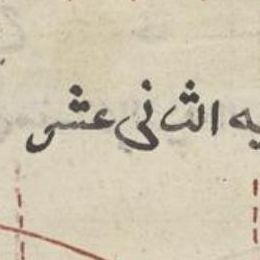 يه الثانى عشر